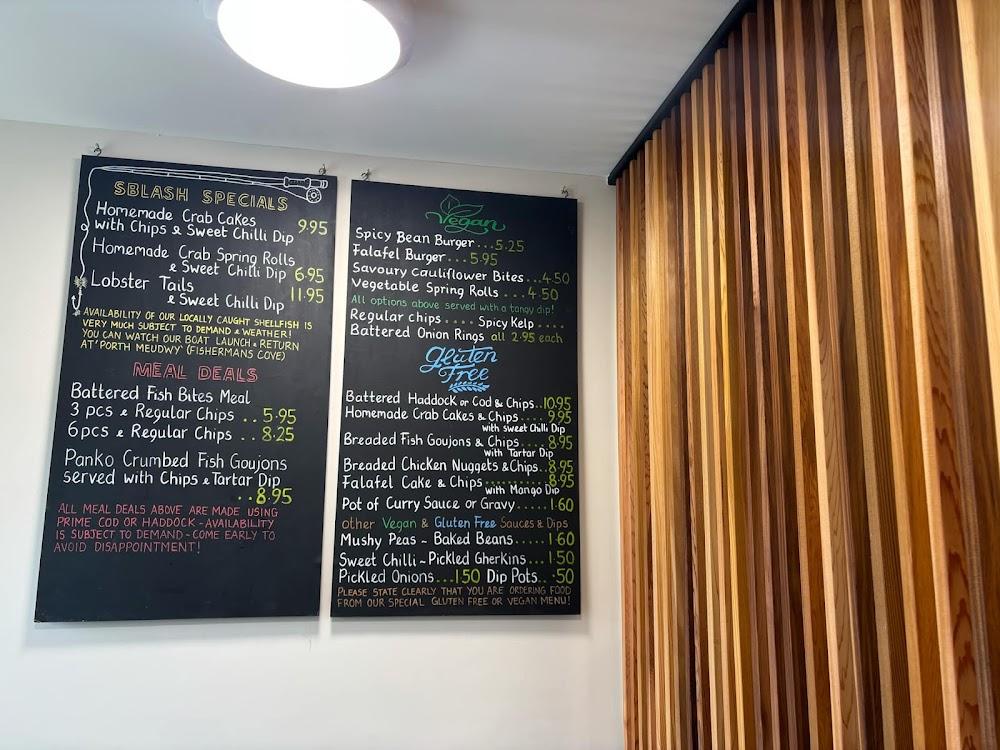 SBLASH SPECIALS
Homemade Crab Cakes
with Chips & Sweet Chilli Dip 9.95
Homemade Crab Spring Rolls
& Sweet Chilli Dip 6.95
Lobster Tails
& Sweet Chilli Dip 11.95
AVAILABILITY OF OUR LOCALLY CAUGHT SHELLFISH IS
VERY MUCH SUBJECT TO DEMAND & WEATHER!
YOU CAN WATCH OUR BOAT LAUNCH & RETURN
AT 'PORTH MEUDWY' (FISHERMANS COVE)
MEAL DEALS
Battered Fish Bites Meal
3 pcs & Regular Chips .. 5.95
6 pcs & Regular Chips .. 8.25
Panko Crumbed Fish Goujons
served with Chips & Tartar Dip
..8.95
ALL MEAL DEALS ABOVE ARE MADE USING
PRIME COD OR HADDOCK - AVAILABILITY
IS SUBJECT TO DEMAND - COME EARLY TO
AVOID DISAPPOINTMENT!
Vegan
Spicy Bean Burger...5.25
Falafel Burger...5.95
Savoury Cauliflower Bites...4.50
Vegetable Spring Rolls ... 4.50
All options above served with a tangy dip!
Regular chips .... Spicy Kelp ....
Battered Onion Rings all 2.95 each
Gluten
Free
Battered Haddock or Cod & Chips..10.95
Homemade Crab Cakes & Chips.... 9.95
with sweet Chilli Dip
Breaded Fish Goujons & Chips....8.95
with Tartar Dip
Breaded Chicken Nuggets & Chips..8.95
Falafel Cake & Chips..........8.95
with Mango Dip
Pot of Curry Sauce or Gravy.....1.60
other Vegan & Gluten Free Sauces & Dips
Mushy Peas ~ Baked Beans.....1.60
Sweet Chilli ~ Pickled Gherkins...1.50
Pickled Onions...1.50 Dip Pots...50
PLEASE STATE CLEARLY THAT YOU ARE ORDERING FOOD
FROM OUR SPECIAL GLUTEN FREE OR VEGAN MENU!